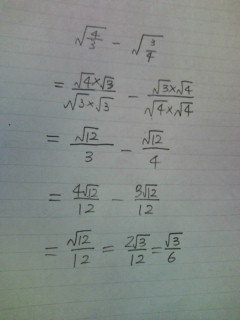 √(4/3) − √(3/4)
= (√4×√3)/(√3×√3) − (√3×√4)/(√4×√4)
= √12/3 − √12/4
= 4√12/12 − 3√12/12
= √12/12 = 2√3/12 = √3/6